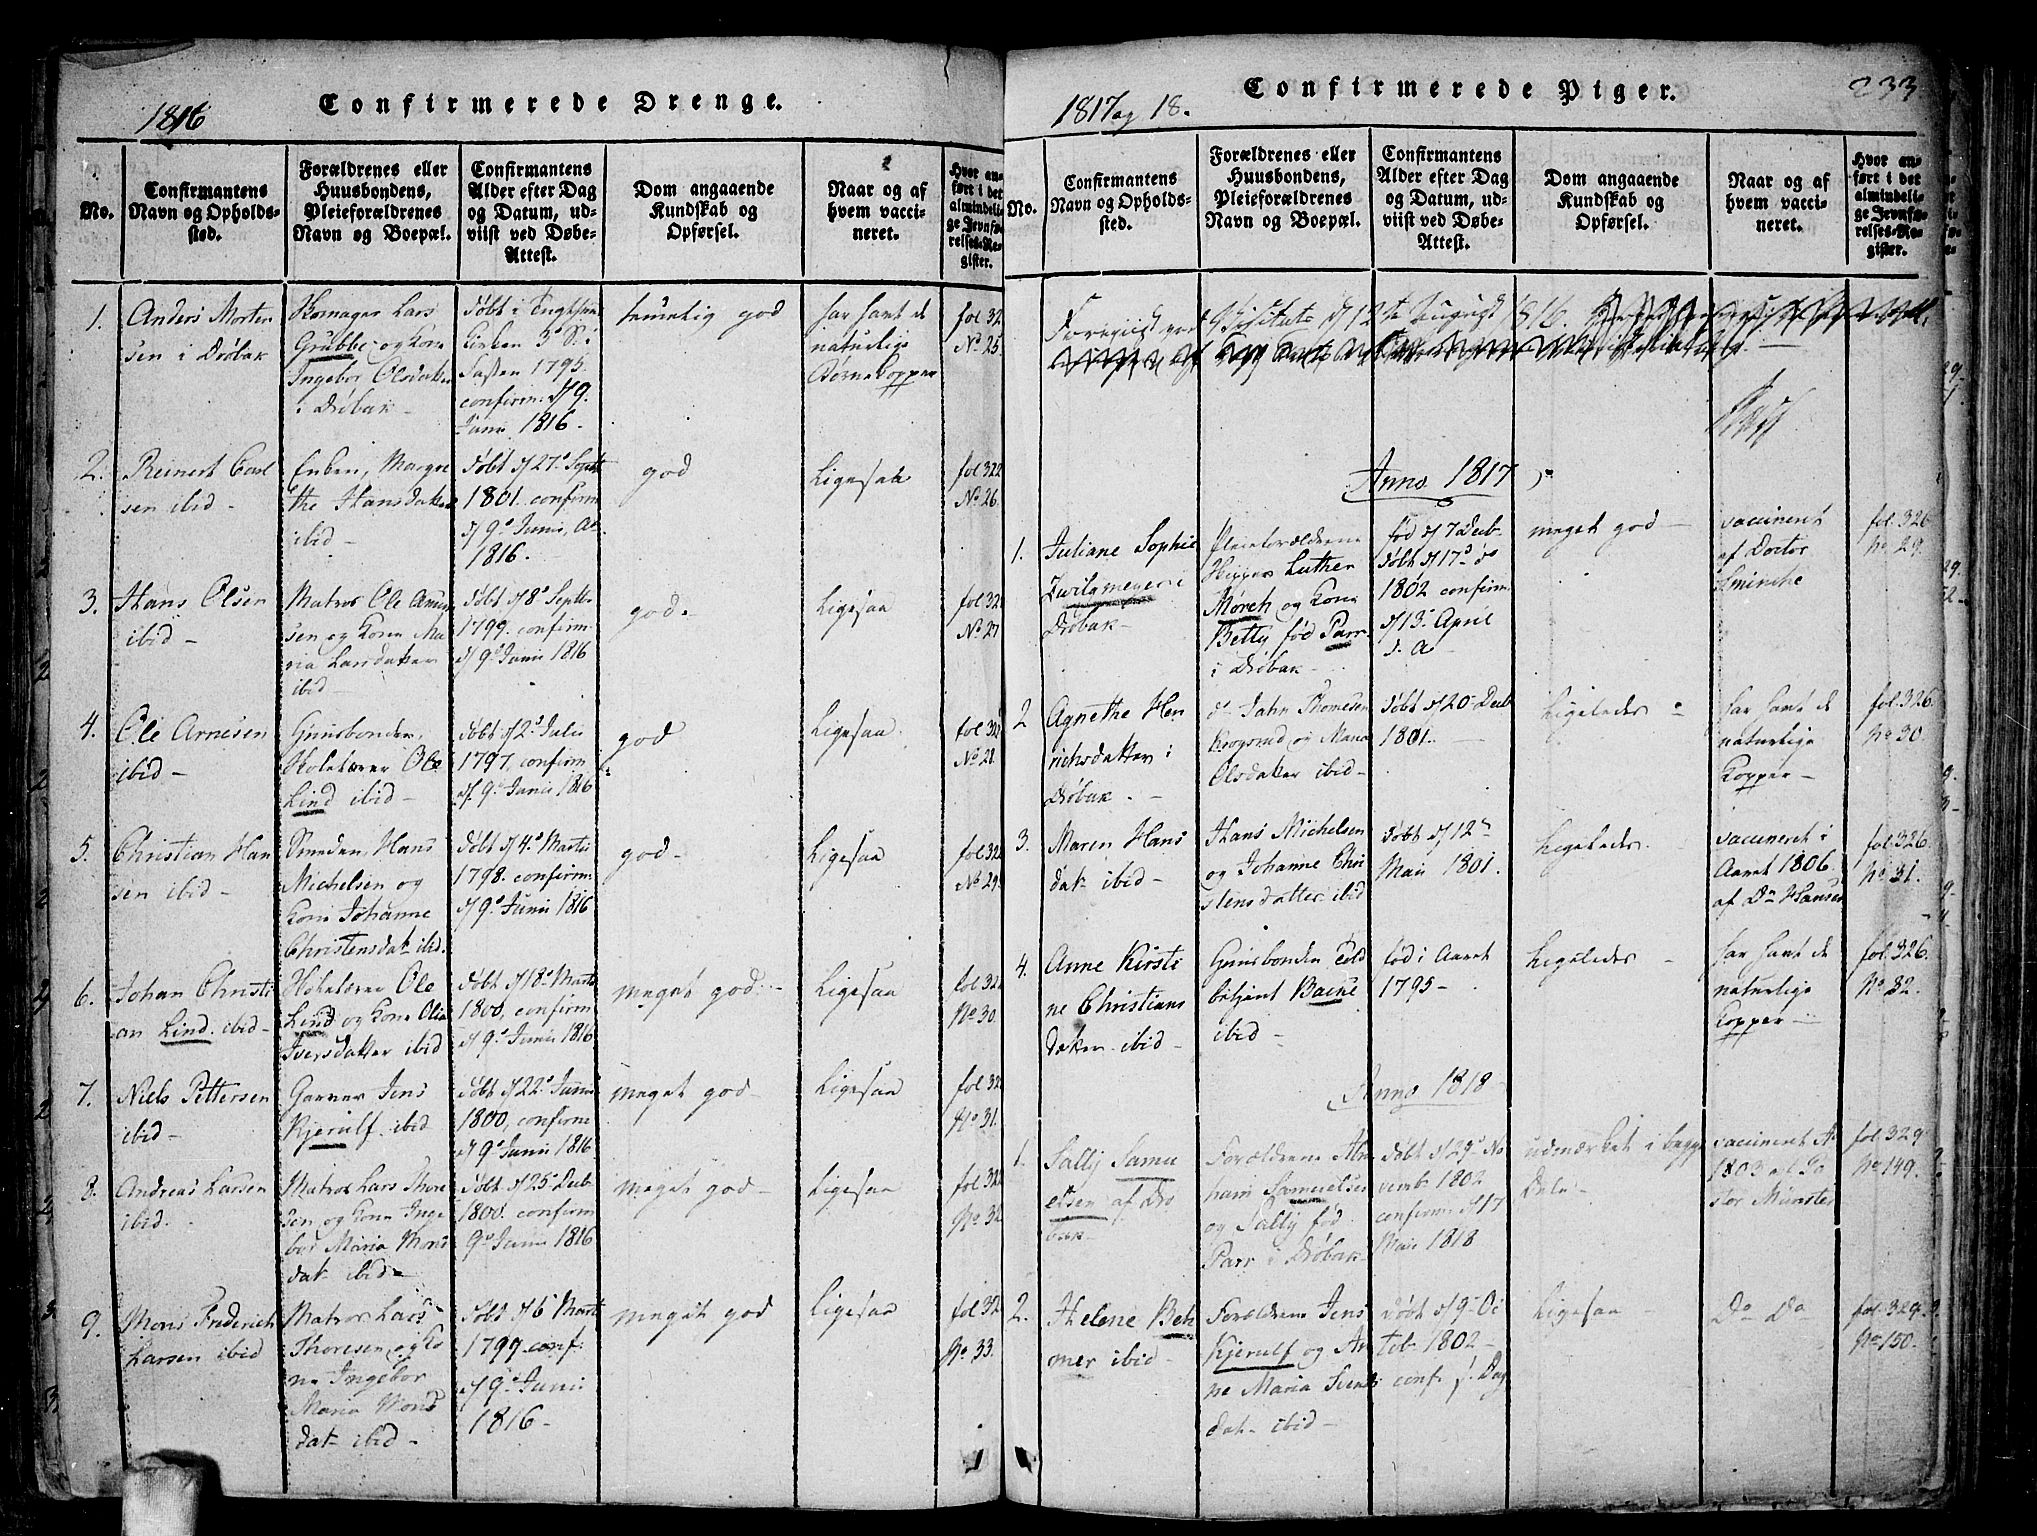 1816
Confirmerede Drenge.
No.
Confirmantens
Navn og Opholds-
sted.
Forældrenes eller
Huusbondens,
Pleieforældrenes
Navn og Boepæl.
Confirmantens
Alder efter Dag
og Datum, ud-
viist ved Døbe-
Attest.
Dom angaaende
Kundskab og
Opførsel.
Naar og af
hvem vacci-
neret.
Hvor an-
ført i det
almindeli-
ge Jevnfø-
relses-Re-
gister.
1.
Anders Morten
sen i Drøbak
Lars
Grubbe og Kone
Ingebor Olsdatter
i Drøbak
døbt i
Kirken 5 S. i
Fasten 1795.
confirm. d/9.
Junii 1816.
temelig god
har havt de
naturlige
Børnekopper
fol 32
No 25
2.
Reinert Carl
sen ibid
Enken, Margre
the Hansdatter
ibid
døbt d/27. Septb
1801. confirm
d/9. Junii, Ao
1816.
god
Ligesaa
fol 322
No 26.
3.
Hans Olsen
ibid
Matros Ole
sen og Kone Ma
ria Larsdatter
ibid
døbt d/8. Septb
1799. confirm.
d/9. Junii 1816
god.
Ligesaa
fol 32
No 27
4.
Ole Arnesen
ibid
Huusbonden,
Skolelærer Ole
Lind ibid
døbt d/2. Julii
1797. confirm
d/9. Junii 1816
god
Ligesaa.
fol 322
No 28.
5.
Christian Han
sen ibid
Smeden, Hans
Michelsen og
Kone Johanne
Christensdatr ibid.
døbt d/4. Martii
1798. confirm.
d/9. Junii 1816
god
Ligesaa
fol 322
No 29.
6.
Johan Christi
an Lind. ibid
Skolelærer Ole
Lind og Kone Olia
Iversdatter ibid
døbt d/18. Marts
1800, confirm
d/9. Junii 1816
meget god.
Ligesaa
fol 32
No 30
7.
Niels Pettersen
ibid
Garver Jens
Kjerulf. ibid
døbt d/22. Junii
1800, confirm
d/9. Junii 1816
meget god
Ligesaa
fol 32
No 31.
8.
Andreas Larsen
ibid.
Matros Lars Thore
sen, og Kone Inge
bor Maria Mons
dat. ibid
døbt d/25. Decb
1800. confirm
9. Junii 1816
meget god
Ligesaa
fol 322
No 32
9.
Mons Frederich
Larsen ibid
Matros Lars
Thoresen, og Ko
ne Ingebor
Maria Mons
dat. ibid
døbt d/6. Marts
1799. conf.
d/9. Junii
1816
meget god
Ligesaa
fol 32
No 33.
1817 og 18.
Confirmerede Piger.
233
No.
Confirmantens
Navn og Opholds-
sted.
Forældrenes eller
Huusbondens,
Pleieforældrenes
Navn og Boepæl.
Confirmantens
Alder efter Dag
og Datum, ud-
viist ved Døbe-
Attest.
Dom angaaende
Kundskab og
Opførsel.
Naar og af
hvem vacci-
neret.
Hvor an-
ført i det
almindeli-
ge Jevnfø-
relses-Re-
gister.
Foreviist ved Visitats d/12te August 1816.
Anno 1817
1.
Juliane Sophie
Zwilgmeyer i
Drøbak
Pleieforældrene
Skipper Luther
Mørch og Kone
Betty fød Parr
i Drøbak
fød d/7 Decb.
døbt d/17. do
1802 confirm.
d/13. April
d. A
meget god
vaccineret
af Doctor
fol. 326
No 29.
2
Agnethe Hen
richsdatter i
Drøbak.
do Jahn Thomesen
Krogsrud og Maria
Olsdatter ibid
døbt d/20 Decb
1801.
Ligeledes
har havt de
naturlige
Kopper
fol. 326.
No 30
3.
Maren Hans
dat. ibid
Hans Michelsen
og Johanne Chri
stensdatter ibid
døbt d/12
Maii 1801.
Ligeledes
vaccineret i
Aaret 1806.
af Dn Hansen
fol. 326.
No 31.
4.
Anne Kirsti
ne Christians
datter ibid
Huusbonden Told
betjent Backe
ibid
fød i Aaret
1795
Ligeledes
har havt de
naturlige
Kopper
fol. 326.
No 32.
Anno 1818
1.
Sally Samu
elsen af Drø
bak
Forældrene Abra
ham Samuelsen
og Sally fød
Parr i Drøbak
døbt d/29. No
vemb. 1802
confirm. d/17
Maii 1818
udmærket i begge
Dele
vaccineret A
1803 af Pa
stor Münster
fol. 329
No 149.
2.
Helene Beh
mer ibid
Forældrene Jens
Kjerulf og An
ne Maria Svends
dat. ibid
døbt d/9 Oc
tob. 1802
conf. s. Dag
Ligesaa
Do Do
fol. 329.
No 150.